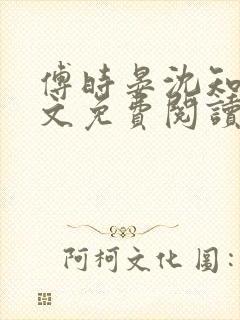 傅时晏沈知
文免費閱讀
阿柯文化圖: